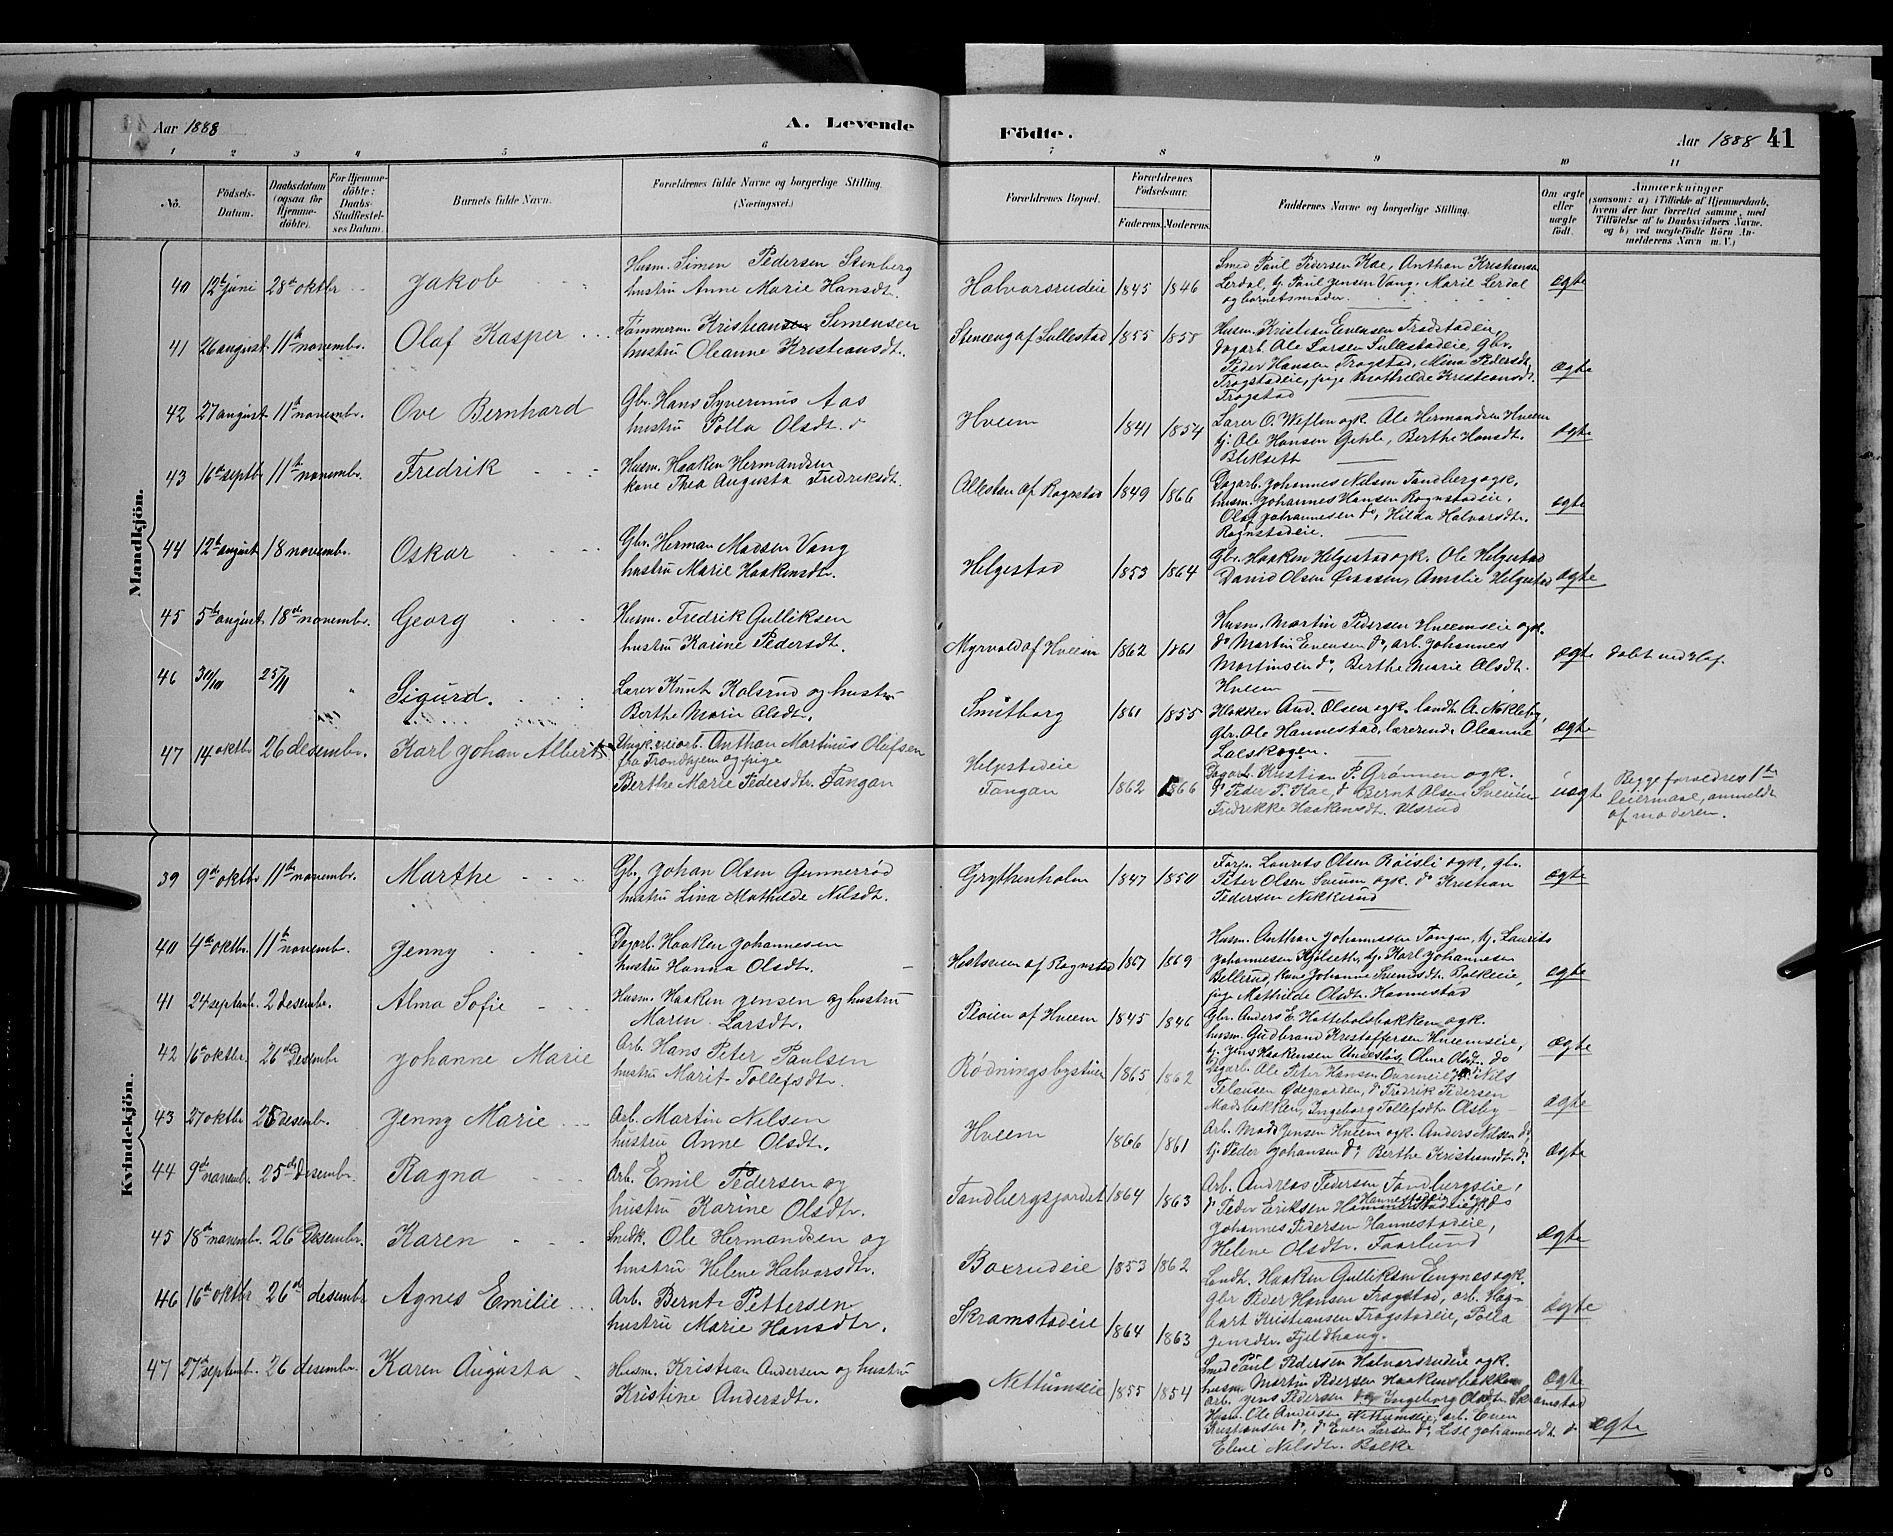 Aar 1888
A. Levende
Födte.
Aar 1888 41
1 2 3 4 5 6 7 8 9 10 11
No.
Födsels-
Datum.
Daabsdatum
(ogsaa for
Hjemme-
döbte).
For Hjemme-
döbte:
Daabs-
Stadfæstel-
ses Datum.
Barnets fulde Navn.
Forældrenes fulde Navne og borgerlige Stilling.
(Næringsvei.)
Forældrenes Bopæl.
Forældrenes
Födselsaar.
Faderens. Moderens.
Faddernes Navne og borgerlige Stilling.
Om ægte
eller
uægte
födt.
Anmærkninger
(saasom: a) i Tilfælde af Hjemmedaab,
hvem der har forrettet samme, med
Tilföielse af to Daabsvidners Navne,
og b) ved uægtefödte Börn An-
melderens Navn m. V.)
Mandkjön.
40 12te juni 28de oktbr Jakob
Husm. Simen Pedersen Stenberg
hustru Anne Marie Hansdtr.
Halvorsrudeie 1845 1846
Smed Paul Pedersen Kae, Anthon Kristiansen
Lerdal, Paul Jensen Vang, Marie Lerdal
og barnets moder.
ægte
41 26 august 11te novembr. Olaf Kasper
Tømmerm. Kristian Simensen
hustru Oleanne Kristiansdtr.
Steneng af Sullestad 1855 1858
Husm. Kristian Evensen Trogstadeie,
Dagarb. Ole Larsen Sullestadeie, Gbr.
Peder Hansen Trogstad, Mina Pedersdtr.
Trogstadeie, pige Mathilde Kristiansdtr.
Trogstad
ægte
42 27 august 11te novembr. Ove Bernhard
Gbr. Hans Syverinus Aas
hustru Polla Olsdtr.
Hveem 1841 1854
Lærer O. Weflen og k. Ole Hermandsen Hveem
Ole Hansen Gehle, Berthe Hansdtr.
ægte
43 16de septbr 11te novembr. Fredrik
Husm. Haaken Hermandsen
kone Thea Augusta Fredriksdtr.
af Rognstad 1849 1866
Dagarb. Johannes Nilsen Tandberg og k.
husm. Johannes Hansen Rognstadeie,
Olaf Johannesen do, Hilda Halvorsdtr.
Rognstadeie.
ægte
44 12te august 18 novembr. Oskar
Gbr. Herman Madsen Vang
hustru Marie Haakensdtr.
Helgestad 1853 1864
Gbr. Haaken Helgestad og k. Ole Helgestad
David Olsen, Amalie Helgestad
ægte
45 5te august. 18de novembr. Georg
Husm. Fredrik Gulliksen
hustru Karine Pedersdtr.
Myrvold af Hveem 1862 1861
Husm. Martin Pedersen Hveemseie og k.
do Martin Evensen do, arb. Johannes
Martinsen do, Berthe Marie Olsdtr.
Hveem
ægte døbt ved Hof.
46 30/10 25/11 " Sigurd.
Lærer Knut Kolsrud og hustru
Berthe Marie Olsdtr.
Smitborg 1861 1855
Klokker And. Olsen og k. landh. A. Nikleby,
Gbr. Ole Hannestad, lærerinde Oleanne
ægte
47 14 oktbr 26 desembr. Karl Johan Albert
Ungk. Anthon Martinus Olufsen
fra Trondhjem og pige
Berthe Marie Pedersdtr. Tangan
Helgestadeie
Tangan 1862 1866
Dagarb. Kristian P. Grønnen og k.
do Peder P. Kae, do Bernt Olsen
Fredrikke Haakensdtr. Ulsrud
uægte
Begge forældres 1ste
leiermaal, anmeldt
af moderen.
Kvindekjön.
39 9de oktbr 11te novembr. Marthe
Gbr. Johan Olsen Gunnerrød
hustru Lina Mathilde Nilsdtr.
Grythenholm 1847 1850
Laurits Olsen Røisli og k, gbr.
Peter Olsen Sveum og k. do Kristian
Pedersen Nikkerud
ægte
40 4de oktbr. 11te novemb. Jenny
Dagarb. Haaken Johannesen
hustru Hanna Olsdtr.
af Rognstad 1867 1869
Husm. Anthon Johannessen Tangen, Laurits
Johannesen, Karl Johannesen
Bellerud, kone Johanne,
pige Mathilde Olsdtr. Hannestad
ægte
41 24 septemb. 2 desembr. Alma Sofie
Husm. Haaken Jensen og hustru
Maren Larsdtr.
Pløien af Hveem 1845 1846
Gbr. Anders E. Hattebolsbakken og k.
husm. Gudbrand Kristoffersen Hveemseie,
Jens Haakensen, Oline Olsdtr. do
ægte
42 16 oktbr. 26de Desembr Johanne Marie
Arb. Hans Peter Paulsen
hustru Marit Tollefsdtr.
Rødningsbystuen 1865 1862
Dagarb. Ole Peter Hansen
Ødegaarden, do Fredrik Pedersen
Madsbakken, Ingeborg Tollefsdtr. Olsby
ægte
43 27 oktbr 26 desembr. Jenny Marie
Arb. Martin Nilsen
hustru Anne Olsdtr.
Hveem 1866 1861
Arb. Mads Jensen Hveem og k. Anders Nilsen do,
Peder Johansen do, Berthe Kristiansdtr. do
ægte
44 9de novemb. 25de desembr. Ragna
Arb. Emil Pedersen og
hustru Karine Olsdtr.
Tandbergsjordet 1864 1863
Arb. Andreas Pedersen Tandbergseie,
do Peder Eriksen Hannestadeie
Johannes Pedersen Hannestadeie,
Helene Olsdtr. Faarlund
ægte
45 18de novembr. 26 Desembr. Karen
Snedk. Ole Hermandsen og
hustru Helene Halvorsdtr.
Boxrudeie 1853 1862
Landh. Haaken Gulliksen Engnes og k.
Gbr Peder Hansen Trogstad, arb. Hag-
bart Kristiansen Trogstadeie, Polla
Jensdtr. Fjeldhaug.
ægte
46 16de oktbr 26de desembr Agnes Emilie
Arb. Bernt Pettersen
hustru Marie Hansdtr.
Skramstadeie 1864 1863
Smed Paul Pedersen Halvorsrudeie og k.
husm. Martin Pedersen Haakensbakken
arb. Jens Pedersen Ingeborg Olsdtr. Skramstad
ægte
47 27de septemb. 26 desembr. Karen Augusta
Husm. Kristian Andersen og hustru
Kristine Andersdtr.
Nettumseie 1855 1854
Husm. Ole Andersen Nettumseie, arb. Even
Kristiansen do, do Even Larsen do, Lise Johannesdtr. do
Eline Nilsdtr. Balke
ægte